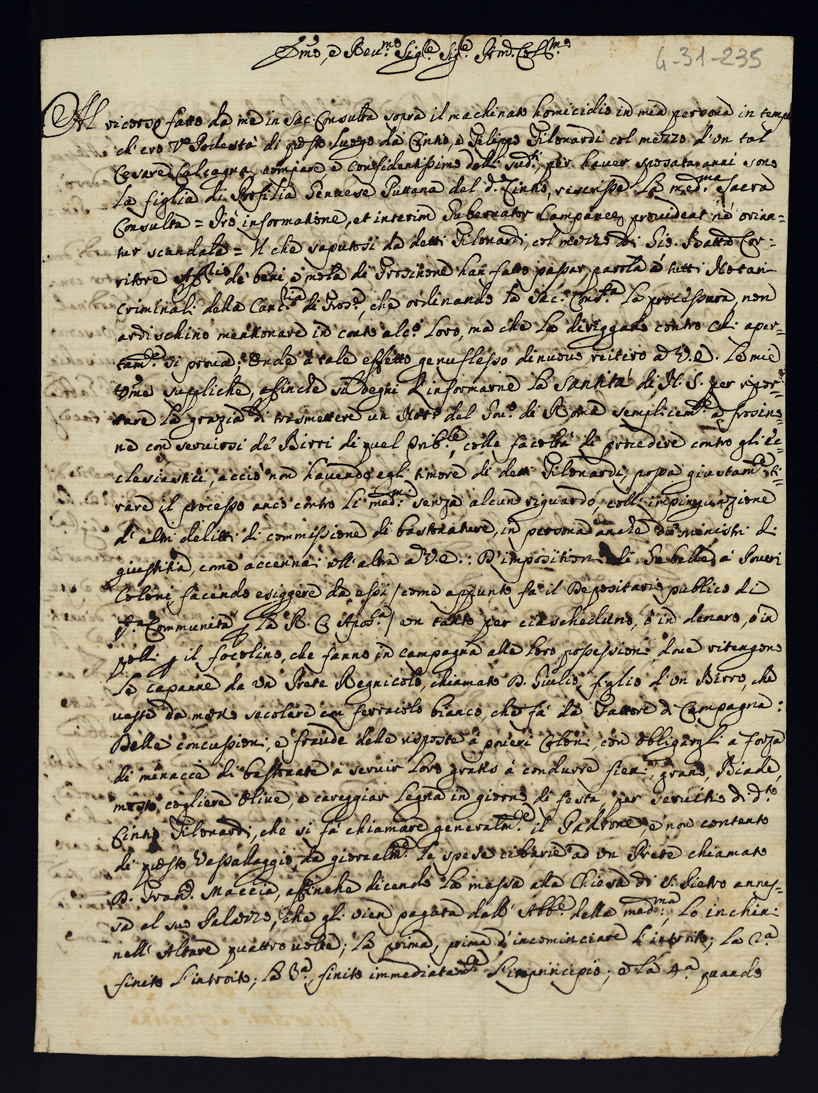 Emo, e Reu.mo Sig.re Sig.re P̃ron. Col.mo
4-31-235
Al ricorso fatto da me in Sac: Consulta sopra il machinato homicidio in mea persona in temp
ch'ero V.e Podestà di questo luogo da Cintio, e Filippo Filonardi col mezzo d'un tal
Cesare Calcagni, compare e confidentissimo delli sud.i, per haver sposata anni sono
la figlia di Persilia Genuese Puttana del d.o Cintio, rescrisse la med.ma Sacra
Consulta = Pro informatione, et interim Gubernator Campaniæ prouideat ne orian=
tur scandala = Il che saputosi da detti Filonardi, col mezzo di Gio: Batta Cor=
ritore Aff.rio de beni e mola di Frosinone hañ fatto passar parola à tutti Notari
criminali della Canc.ria di Fros.e, che ordinando la Sac: Cons.ta la processura, non
ardischino mentionare in conto alc.o Loro, ma che la diriggano contro chi aper=
tam.te si proua; Onde à tale effetto genuflesso di nuouo reitero ad V.E. le mie
hum.e suppliche, affinche si degni d'informarne la Santità di N. S. per ripor=
tare la grazia di trasmettere un Not.o del Gou.o di Roma semplicem.te à Frosino=
ne con seruirsi de' Birri di quel Trib.le, colle facoltà di procedere contro gli Ec=
clesiastici, acciò non hauendo egli timore di detti Filonardi, possa giustam.te ti=
rare il processo anco contro li med.mi senza alcun riguardo, coll' impinguazione
d'altri delitti di commissione di bastonature, in persona anche de ministri di
giustitia, come accennai coll' altra ad V.E.: D'imposition di Gabelle à Poueri
Coloni facendo esiggere da essi /come appunto fa il Depositario publico di
q.ta Communità, la R. C. Apos.a/ un tanto per ciascheduno, ò in denaro, ò in
polli p il focolino, che fanno in campagna alle loro possessioni, doue ritengono
le capanne da un Frate Regnicolo, chiamato D. Giulio, figlio d'un Birro, che
ueste da mezzo secolare con ferraiolo bianco, che fà da Fattore di Campagna:
Delle concussioni, e fraude delle risposte à poueri Coloni, con obligargli a forza
di minaccie di bastonate à seruir loro gratis à condurre fieni, grano, Biade,
mosto, cogliere Oliue, e careggiar legna in giorno di festa, per seruitio di d.to
Cintio Filonardi, che si fà chiamare generalm.te il Padrone, e non contento
di questo Vassallaggio, da giornalm.te le spese cibarie ad un Prete chiamato
D. Fran.co Maccia, affinche dicendo la messa alla Chiesa di S. Pietro annes=
sa al suo Palazzo, che gli vien pagata dall' Abb.e della med.ma, lo inchini
nell' Altare quattro uolte; la prima, prima d'incominciare l'introito; la 2.a
finito l'introito; la 3.a finito immediatam.te l'inprincipio; e la 4.a quando